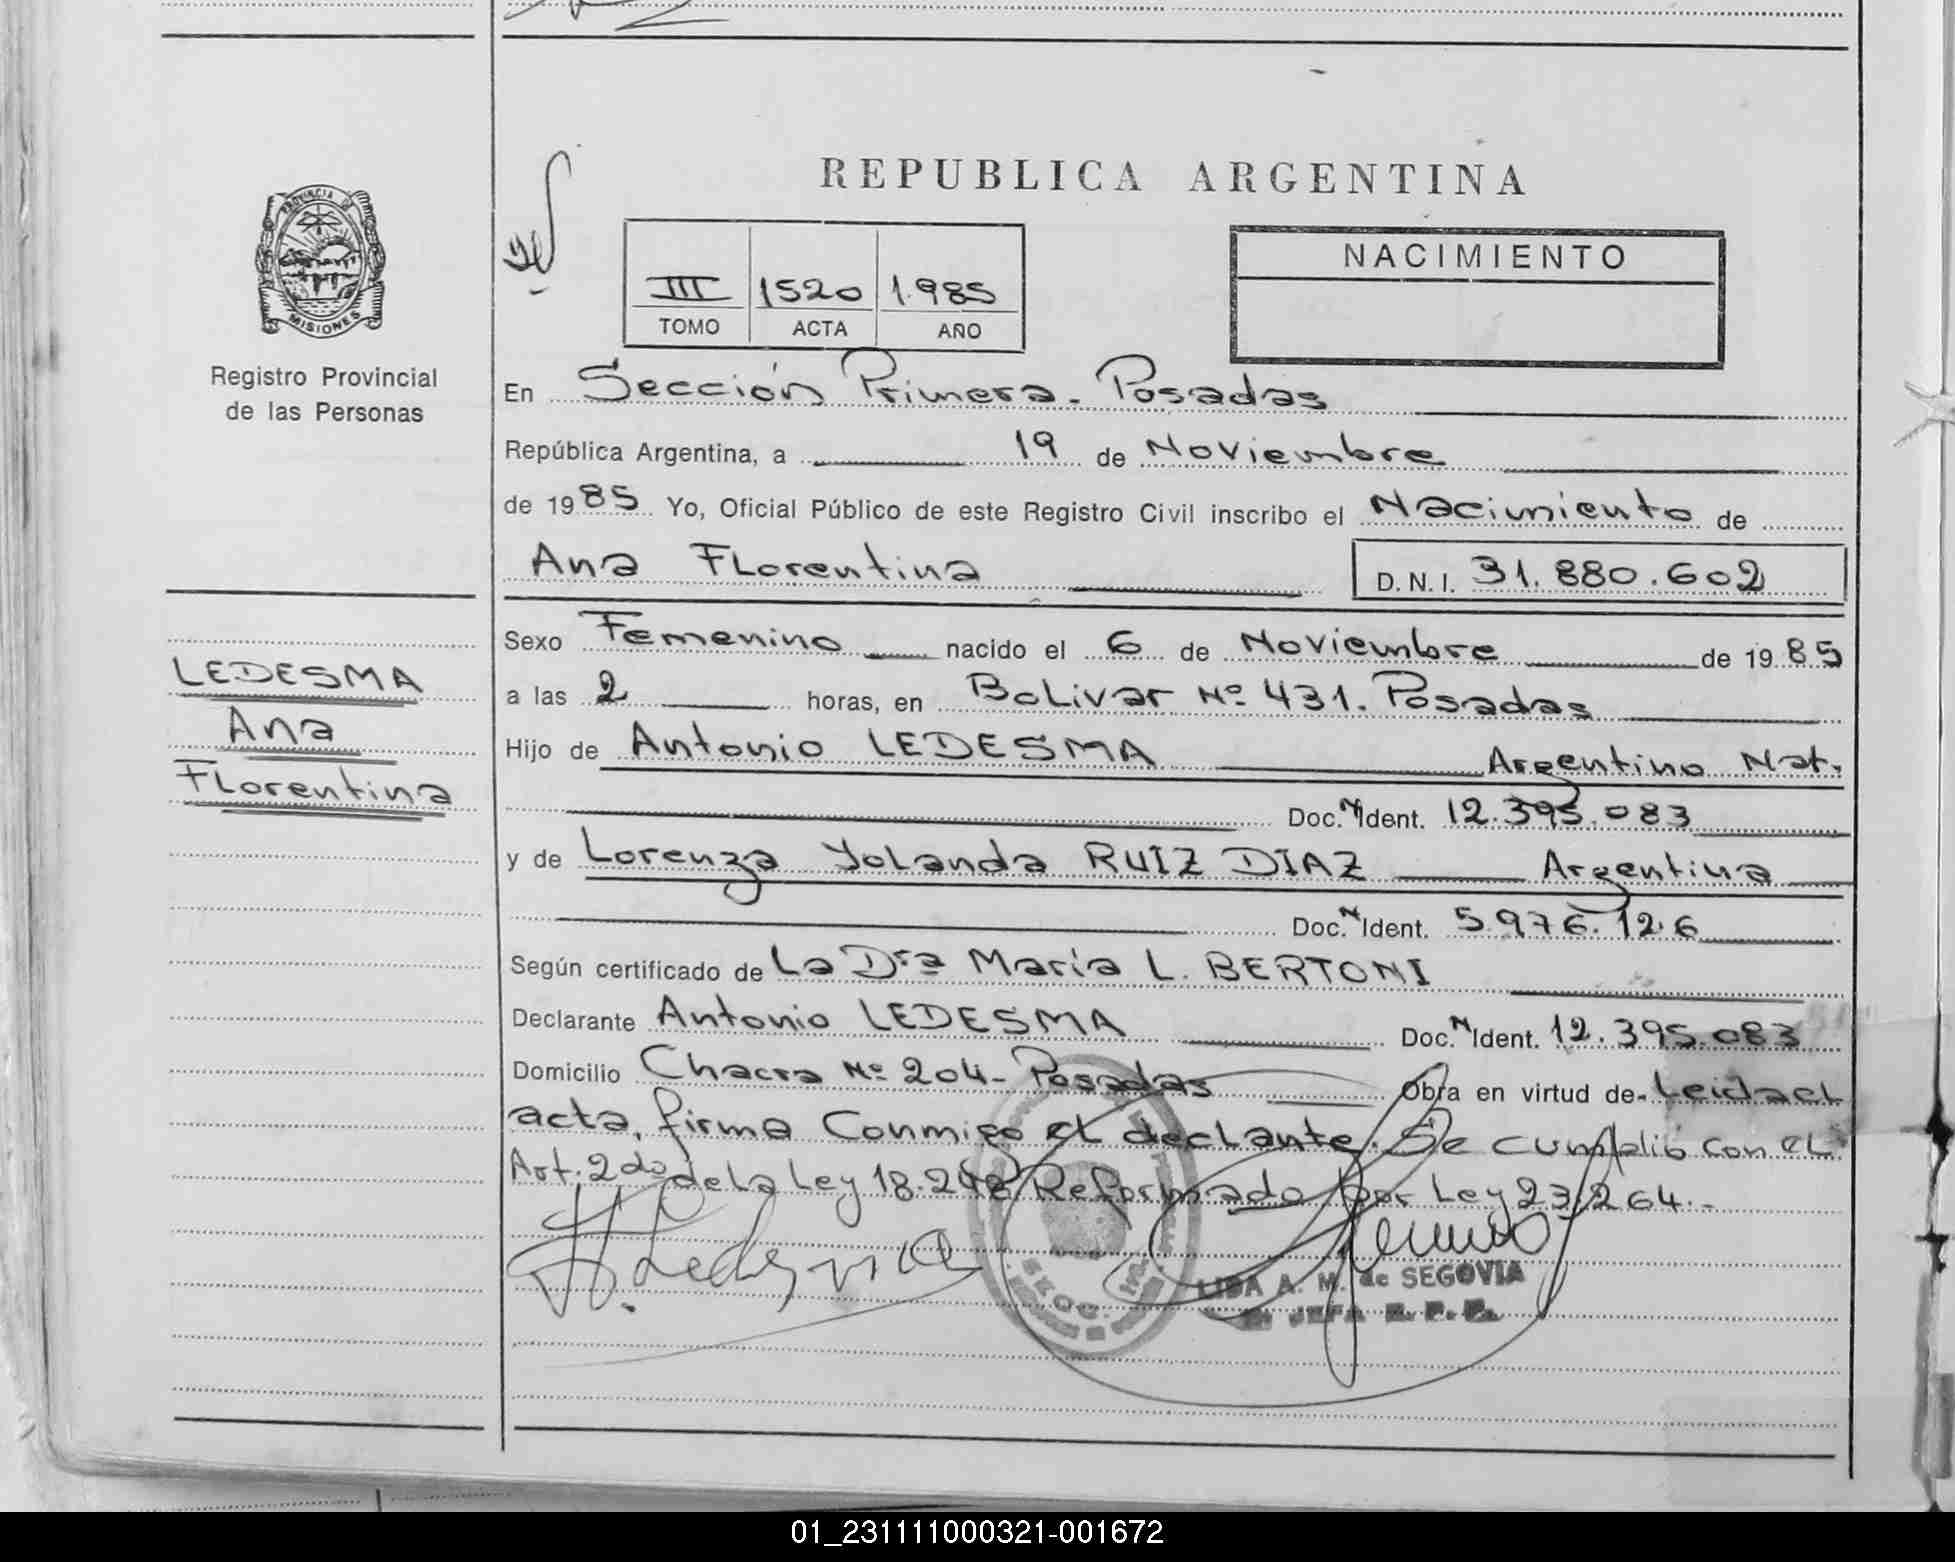 REPUBLICA ARGENTINA
PROVINCIA DE
MISIONES
Registro Provincial
de las Personas
III 1520 1.985
TOMO ACTA AÑO
NACIMIENTO
En Sección Primera. Posadas
República Argentina, a 19 de Noviembre
de 1985 Yo, Oficial Público de este Registro Civil inscribo el Nacimiento de
Ana Florentina D.N.I. 31.880.602
Sexo Femenino nacido el 6 de Noviembre de 1985
LEDESMA
Ana
Florentina
a las 2 horas, en Bolivar Nº 431. Posadas
Hijo de Antonio LEDESMA Argentino Nat.
Doc. N Ident. 12.395.083
y de Lorenza Yolanda RUIZ DIAZ Argentina
Doc. N Ident. 5.976.126
Según certificado de La Dra María L. BERTONI
Declarante Antonio LEDESMA Doc. N Ident. 12.395.083
Domicilio Chacra Nº 204- Posadas Obra en virtud de- Leida el
acta, firma Conmigo el declante. Se cumplió con el
Art. 2do de la Ley 18.248 Reformado por Ley 23.264.-
A. Ledesma
LIDA A. M. de SEGOVIA
JEFA R. P. P.
01_231111000321-001672